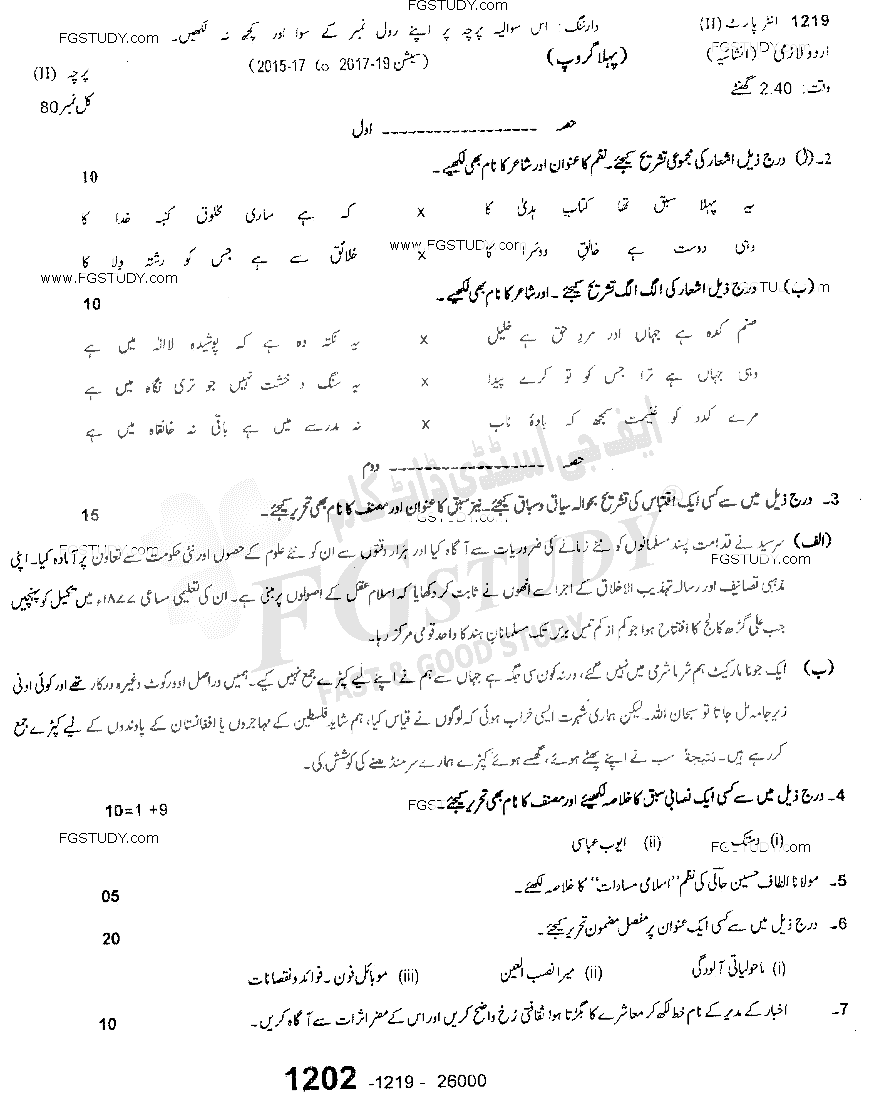 FGSTUDY.com
1219 انٹر پارٹ (II) وارننگ۔ اس سوالیہ پرچہ پر اپنے رول نمبر کے سوا اور کچھ نہ لکھیں۔ FGSTUDY.com
اردو لازمی (انشائیہ) (پہلا گروپ) (سیشن 2015-17 to 2017-19) پرچہ (II)
وقت: 2.40 گھنٹے کل نمبر 80
حصہ ------------------ اول
2۔ (ا) درج ذیل اشعار کی مجموعی تشریح کیجئے۔ نظم کا عنوان اور شاعر کا نام بھی لکھیے۔ 10
یہ پہلا سبق تھا کتاب ہدیٰ کا x کہ ہے ساری مخلوق کنبہ خدا کا
وہی دوست ہے خالقِ دوسرا کا x خلائق سے ہے جس کو رشتہ ولا کا
www.FGSTUDY.com
www.FGSTUDY.com
(ب) درج ذیل اشعار کی الگ الگ تشریح کیجئے۔ اور شاعر کا نام بھی لکھیے۔ 10
صنم کدہ ہے جہاں اور مردِ حق ہے خلیل x یہ نکتہ وہ ہے کہ پوشیدہ لاالٰہ میں ہے
وہی جہاں ہے ترا جس کو تو کرے پیدا x یہ سنگ و خشت نہیں جو تری نگاہ میں ہے
مرے کدو کو غنیمت سمجھ کہ بادۂ ناب x نہ مدرسے میں ہے باقی نہ خانقاہ میں ہے
ایف جی اسٹڈی ڈاٹ کام
حصہ ------------------ دوم
3۔ درج ذیل میں سے کسی ایک اقتباس کی تشریح بحوالہ سیاق و سباق کیجئے۔ نیز سبق کا عنوان اور مصنف کا نام بھی تحریر کیجئے۔ 15
FGSTUDY.com
(الف) سرسید نے قدامت پسند مسلمانوں کو نئے زمانے کی ضروریات سے آگاہ کیا اور ہزار دقتوں سے ان کو نئے علوم کے حصول اور نئی حکومت سے تعاون پر آمادہ کیا۔ اپنی
FGSTUDY.com
مذہبی تصانیف اور رسالہ تہذیب الاخلاق کے اجرا سے انھوں نے ثابت کر دکھایا کہ اسلام عقل کے اصولوں پر مبنی ہے۔ ان کی تعلیمی مساعی ۱۸۷۷ء میں تکمیل کو پہنچیں
FGSTUDY
جب علی گڑھ کالج کا افتتاح ہوا جو کم از کم تیس برس تک مسلمانانِ ہند کا واحد قومی مرکز رہا۔
FAST & GOOD STUDY
(ب) ایک جونا مارکیٹ ہم شرما شرمی میں نہیں گئے، ورنہ کون سی جگہ ہے جہاں سے ہم نے اپنے لیے کپڑے جمع نہیں کیے۔ ہمیں دراصل اوورکوٹ وغیرہ درکار تھے اور کوئی اونی
زیر جامہ مل جاتا تو سبحان اللہ۔ لیکن ہماری شہرت ایسی خراب ہوئی کہ لوگوں نے قیاس کیا، ہم شاید فلسطین کے مہاجروں یا افغانستان کے پاوندوں کے لیے کپڑے جمع
کر رہے ہیں۔ نتیجۃً سب نے اپنے پھٹے ہوئے، گھسے ہوئے کپڑے ہمارے سر منڈھنے کی کوشش کی۔
4۔ درج ذیل میں سے کسی ایک نصابی سبق کا خلاصہ لکھیئے اور مصنف کا نام بھی تحریر کیجئے۔ 10=1 +9
(i) دستک (ii) ایوب عباسی FGSTUDY.com
5۔ مولانا الطاف حسین حالی کی نظم "اسلامی مساوات" کا خلاصہ لکھئے۔ 05
6۔ درج ذیل میں سے کسی ایک عنوان پر مفصل مضمون تحریر کیجئے۔ 20
(i) ماحولیاتی آلودگی (ii) میرا نصب العین (iii) موبائل فون۔ فوائد و نقصانات
7۔ اخبار کے مدیر کے نام خط لکھ کر معاشرے کا بگڑتا ہوا ثقافتی رُخ واضح کریں اور اس کے مضر اثرات سے آگاہ کریں۔ 10
1202 -1219 - 26000